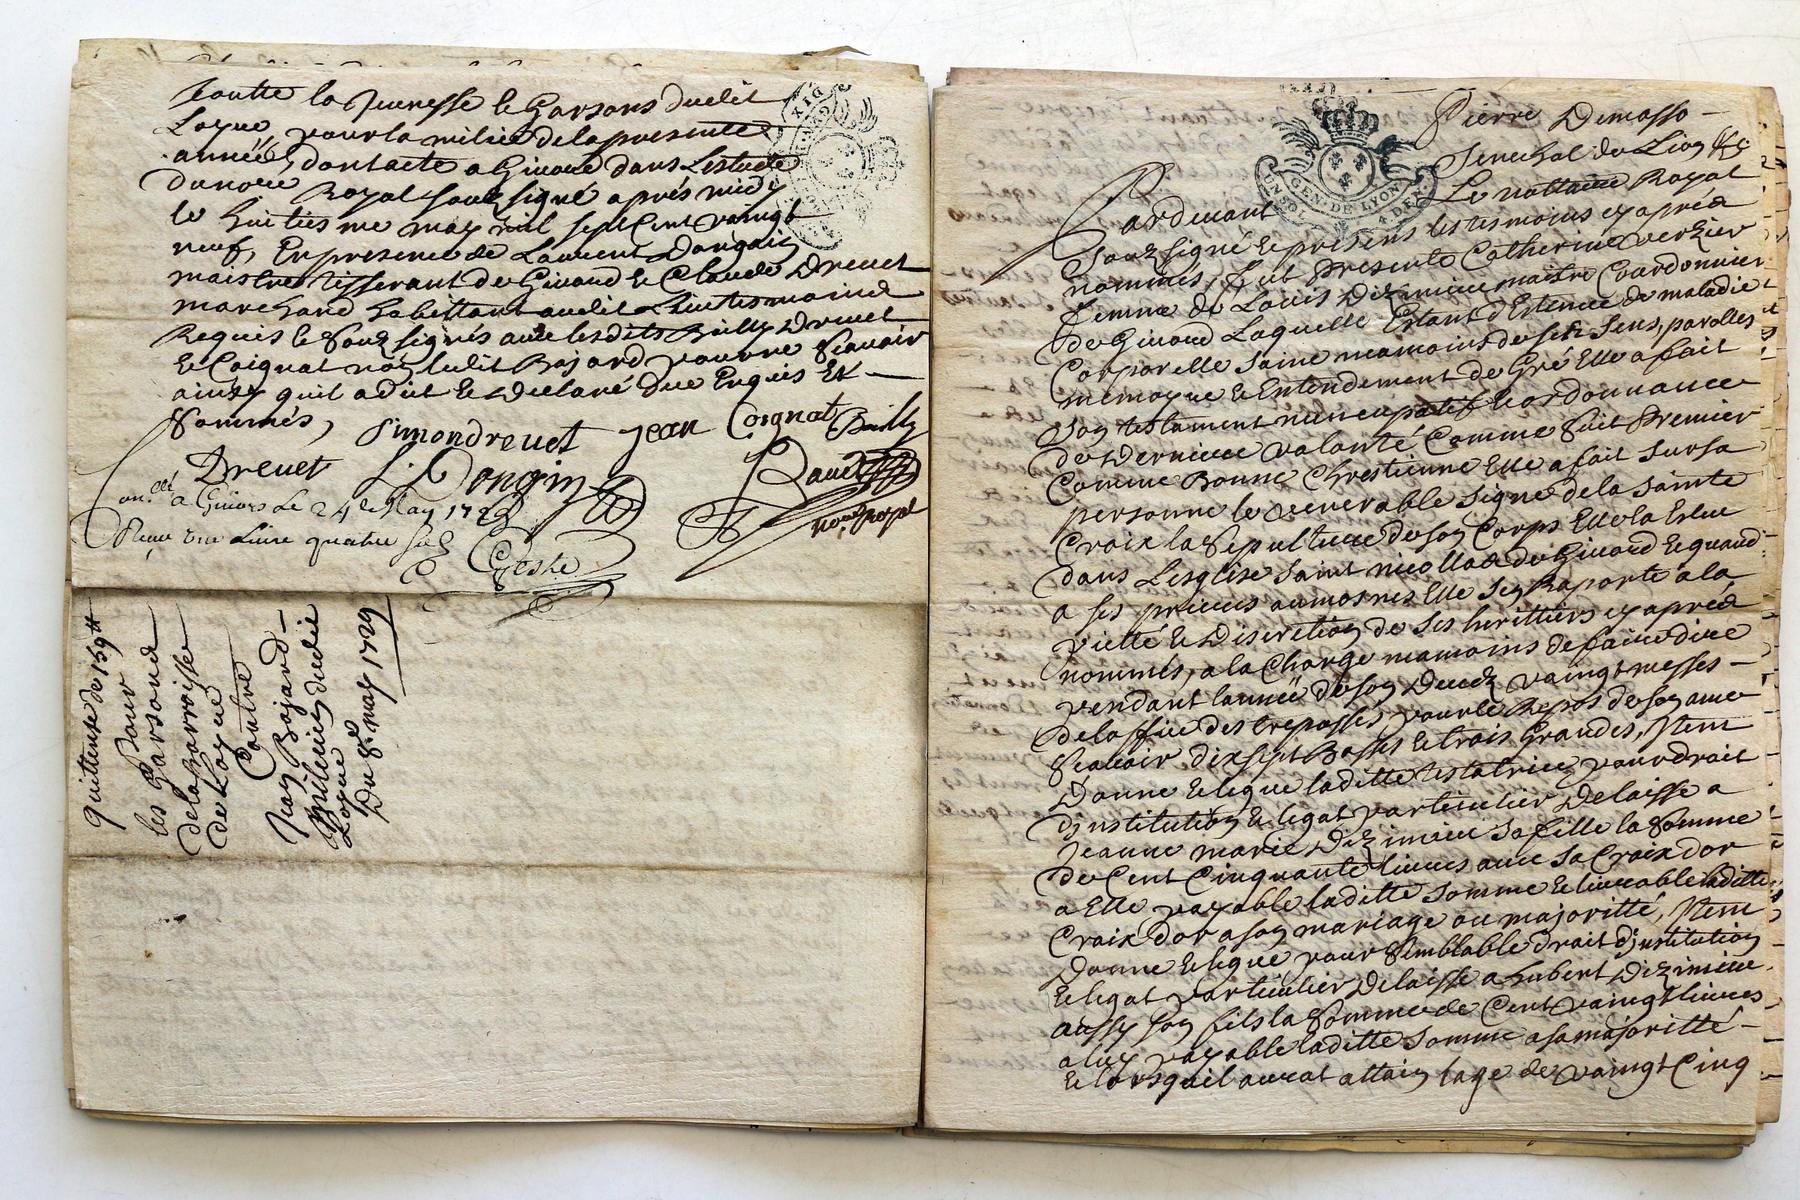 toutte la Jeunesse & Garsons dudit
Loyre, pour la milice de la presente
année, dont acte a Givord dans Lestude
du no.re Royal sousigné aprés midy
le huitiesme may mil sept Cent vaingt
neuf, En presence de Laurent Dongain
maistre tisserant de Givord & Claude Drevet
marchand habittant audit lieu tesmoins
Requis & Sousignés avec lesdits Bailly Drevet
& Coignat non ledit Bajard pour ne Scavoir
ainsy quil a dit & declaré due Enquis Et
Sommés,
Simondrevet Jean Coignat Bailly
Drevet L. Dongin
Baud
no.re Royal
Con.llé a Givors Le 24 de May 1729
Reçu une Livre quatre sols
Geste
quittense de 159 tt
Pour
les Garsons
de la Parroisse
de Loyre
Contre
Jean Bajard
Milicien dudit
Loyre
Du 8.e may 1729
DIX
GEN. DE LYON
4 DEN.
UN SOL
Pierre Demasso
Senechal de Lion &c
Pardevant Le nottaire Royal
Sousigné & presens les tesmoins cy aprés
nommés, fut Presente Catherine verzier
femme de Louis Dizimieu maitre Courdonnier
de Givord Laquelle Estant d'Etenue de maladie
Corporelle Saine neamoins de ses Sens, parolles
memoyre & Entendement de Gré Elle a fait
son testament nuncupatif & ordonnance
de Derniere volonté Comme Suit Premier
Comme Bonne Chrestienne Elle a fait sur sa
personne le venerable Signe de la Sainte
Croix la Sepulture de son Corps Elle la Eslue
dans L'esglise Saint nicollas de Givord & quand
a ses prieres aumosnes Elle s'en Raporte a la
pietté & Discretion de ses herittiers cy aprés
nommés, a la Charge neamoins de faire dire
pendant lannée de son Decez vaingt messes
de loffice des trepassés pour le Repos de son ame
Scavoir dixsept Basses & trois Grandes, Item
Donne & legue laditte testatrice pour droit
d'institution & legat particulier Delaisse a
Jeanne marie Dizimieu sa fille la Somme
de Cent Cinquante livres avec Sa Croix dor
a Elle payable laditte somme & livrable laditte
Croix dor a son mariage ou majoritté, Item
Donne & legue pour Semblable droit d'institution
& legat particulier Delaisse a hubert Dizimieu
aussy son fils la Somme de Cent vaingt livres
a luy payable laditte Somme a sa majoritté
& lorsquil aurat attain lage de vaingt Cinq